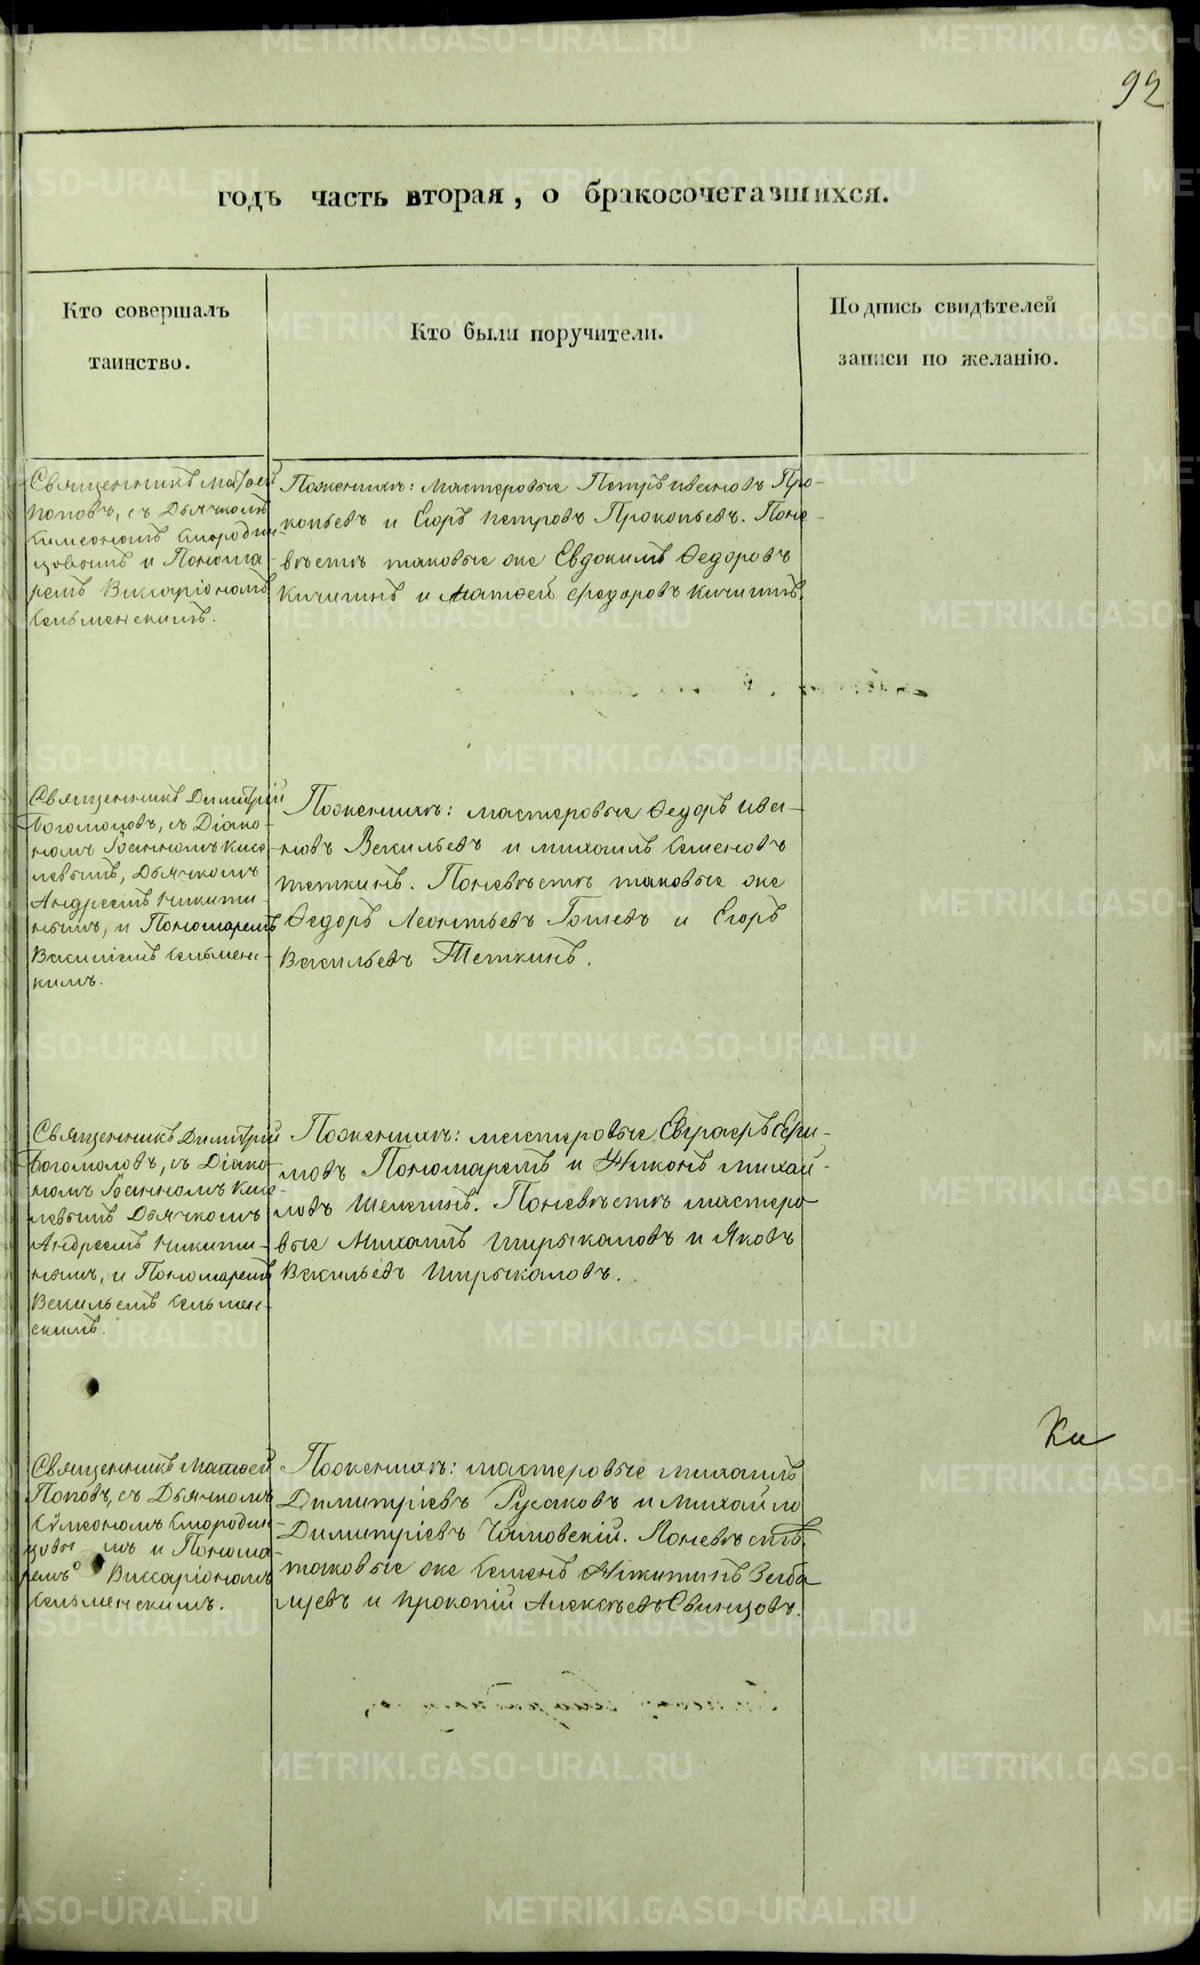 92
годъ часть вторая, о бракосочетавшихся.
Кто совершалъ
таинство.
Кто были поручители.
Подпись свидѣтелей
записи по желанію.
Священникъ Матѳей
Поповъ, съ Дьячкомъ
Симеономъ Смородин-
цовымъ и Понома-
ремъ Виссаріономъ
Сельменскимъ.
По женихѣ: мастеровые Петръ Ивановъ Про-
копьевъ и Егоръ Петровъ Прокопьевъ. По не-
вѣстѣ таковые же Евдокимъ Ѳедоровъ
Кичигинъ и Матѳей Ѳедоровъ Кичигинъ.
Священникъ Димитрій
Богомоловъ, съ Діако-
номъ Іоанномъ Кисе-
левымъ, Дьячкомъ
Андреемъ Никити-
нымъ, и Пономаремъ
Василіемъ Сельменс-
кимъ.
По женихѣ: мастеровые Ѳедоръ Ива-
новъ Васильевъ и Михаилъ Семеновъ
Теткинъ. По невѣстѣ таковые же
Ѳедоръ Леонтьевъ Гошевъ и Егоръ
Васильевъ Теткинъ.
Священникъ Димитрій
Богомоловъ, съ Діако-
номъ Іоанномъ Кисе-
левымъ Дьячкомъ
Андреемъ Никити-
нымъ, и Пономаремъ
Васильемъ Сельмен-
скимъ.
По женихѣ: мастеровые Евграфъ Ефи-
мовъ Пономаревъ и Никонъ Михай-
ловъ Шелегинъ. По невѣстѣ мастеро-
вые Михаилъ Ширыкаловъ и Яковъ
Васильевъ Ширыкаловъ.
Ки
Священникъ Матѳей
Поповъ, съ Дьячкомъ
Сѵмеономъ Смородин-
цовымъ и Понома-
ремъ Виссаріономъ
Сельменскимъ.
По женихѣ: мастеровые Михаилъ
Димитріевъ Русаковъ и Михайло
Димитріевъ. По невѣстѣ
таковые же Семенъ Никитинъ
и Прокопій Алексѣевъ Свинцовъ.
METRIKI.GASO-URAL.RU